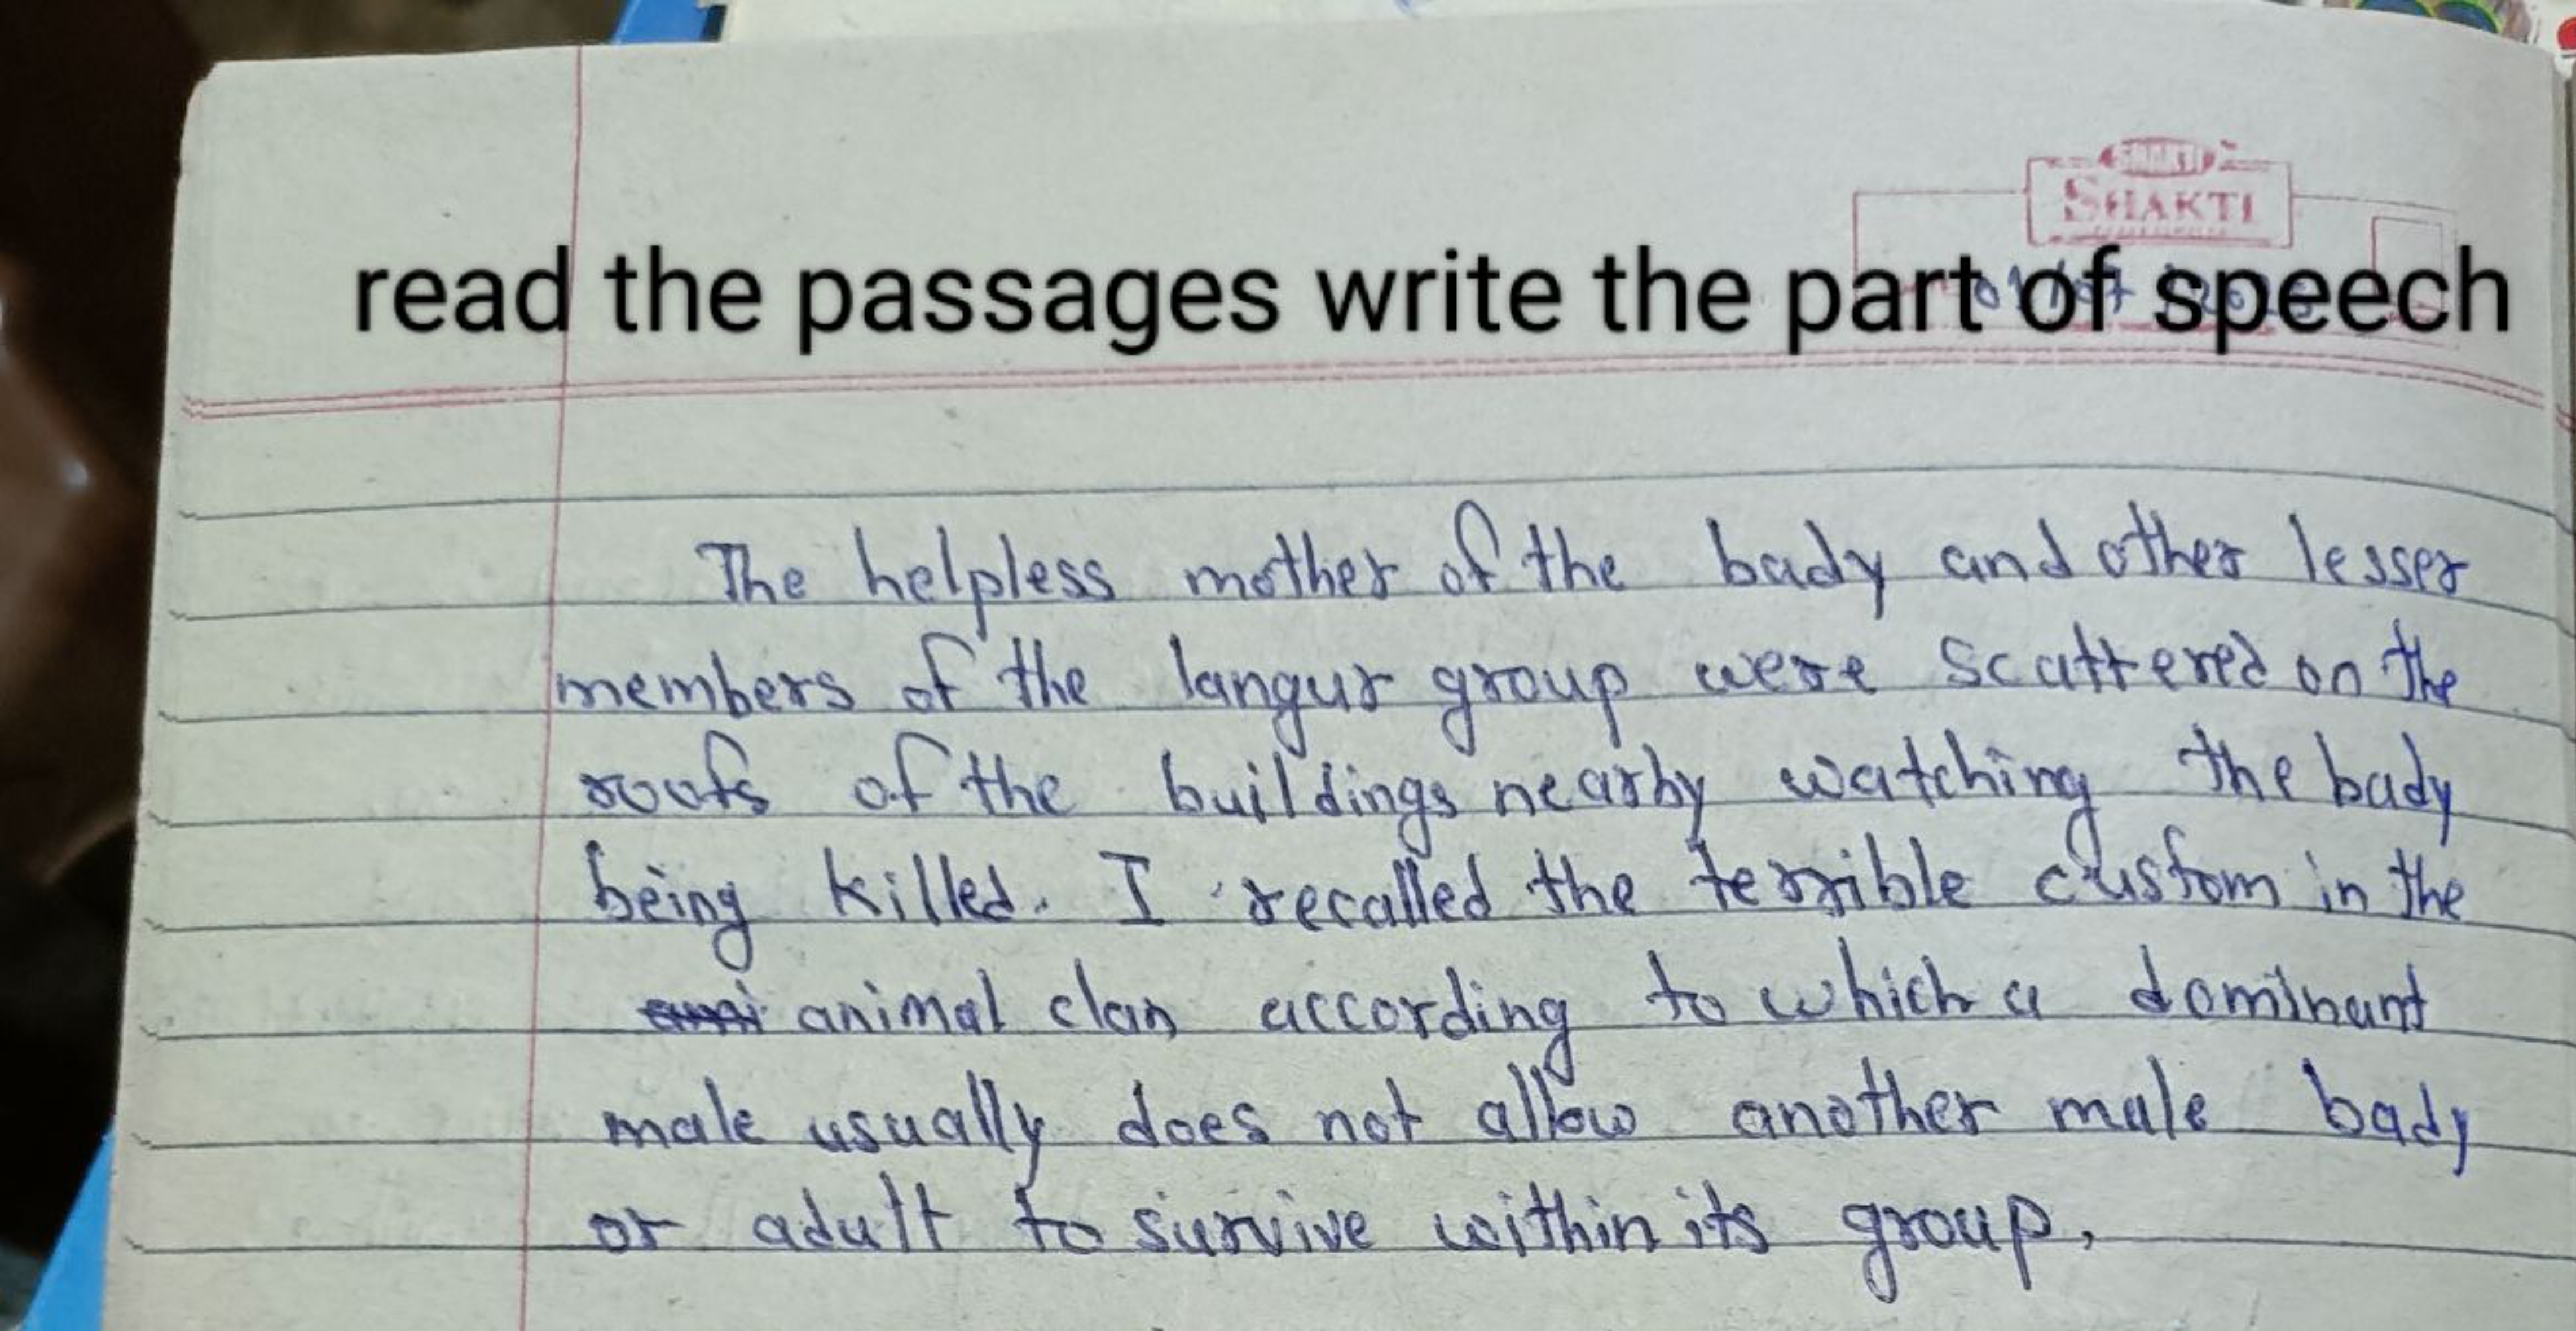 SHAKTI
SHAKTI
read the passages write the part of speech
The helpless mother of the bady and other lesser
members of the langur group were scattered on the
roofs of the buildings nearby watching the bady
being killed. I recalled the terrible custom in the
animal clan according to which a dominant
male usually does not allow another male bady
or adult to survive within its group,